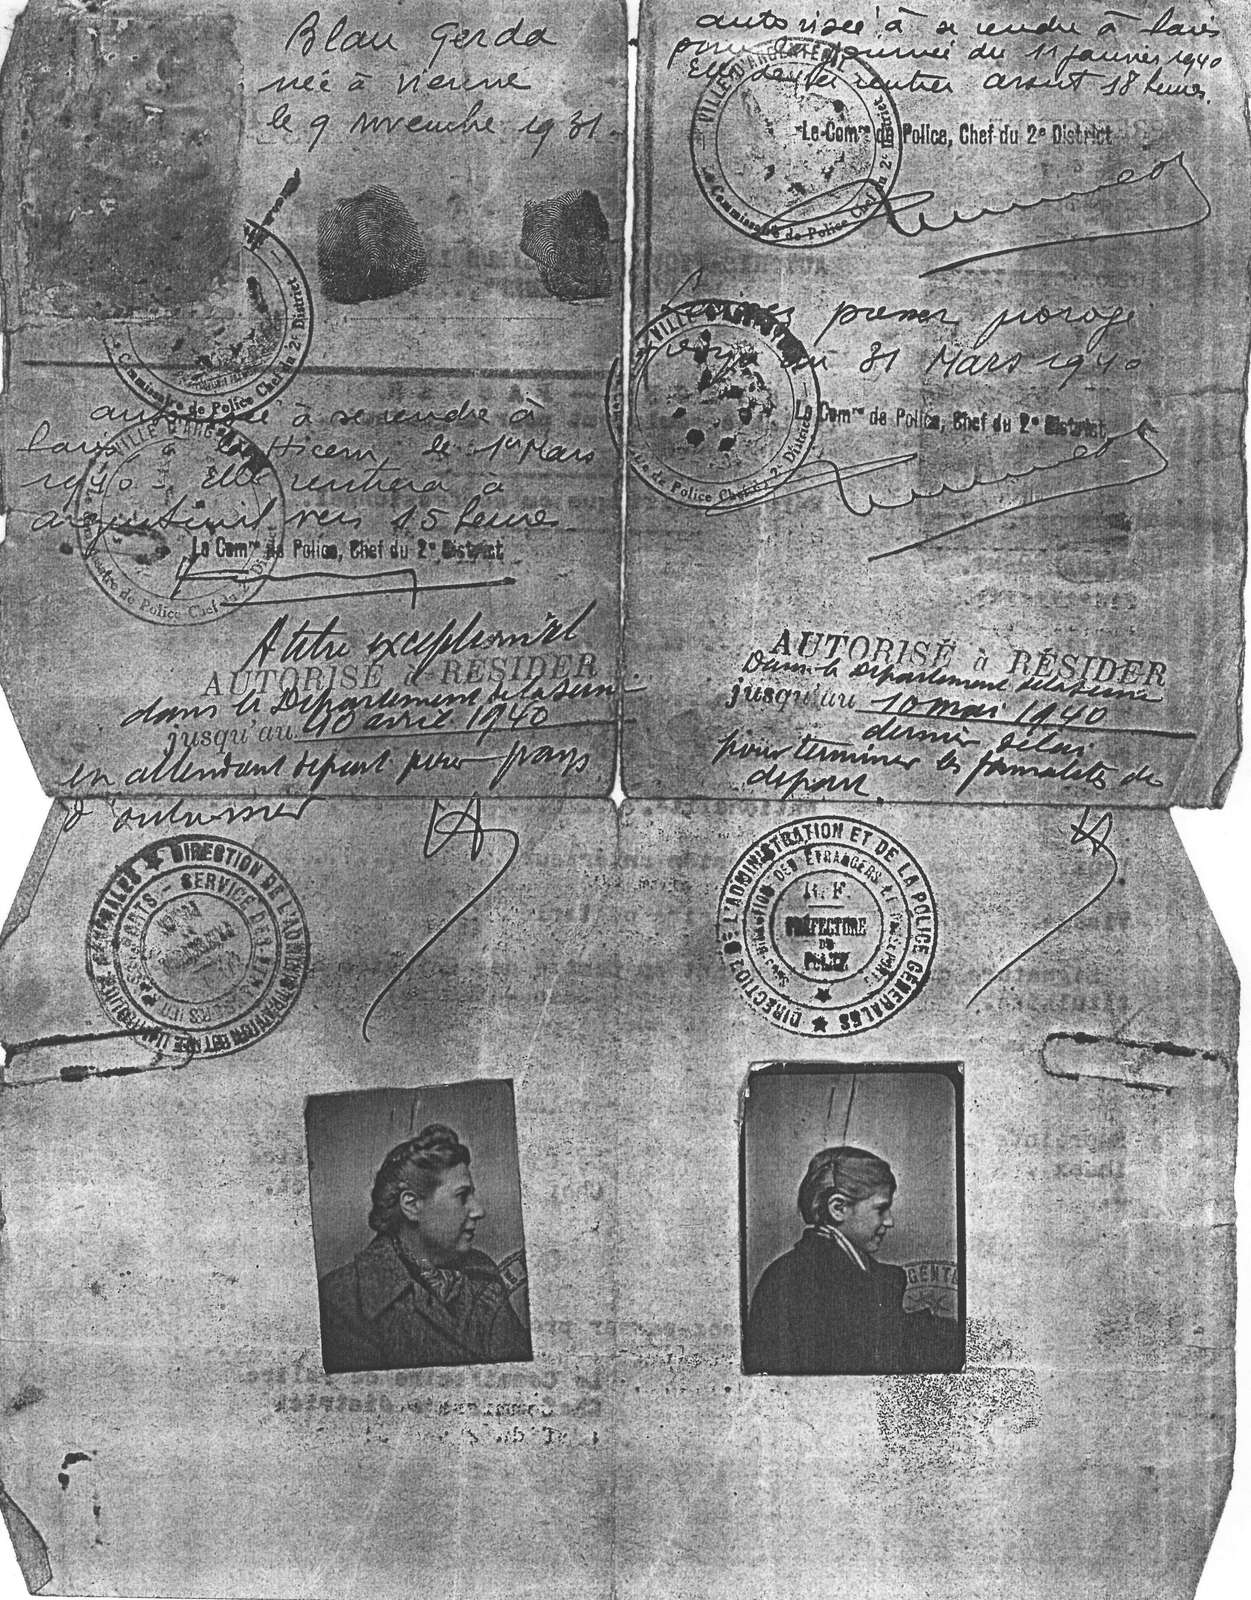 Blau Gerda
née à Vienne
le 9 novembre 1931.
Commissaire de Police Chef du 2e District
autorisée à se rendre à
Paris à Hicem, le 1er Mars
1940. Elle rentrera à
Argenteuil vers 15 heures
VILLE D'ARG
Le Comre de Police, Chef du 2e District
Commissaire de Police Chef du 2e Di
A titre exceptionnel
AUTORISÉ à RÉSIDER
dans le Département de la Seine
jusqu'au 10 avril 1940
en attendant départ pour pays
d'outremer
DIRECTION DE L'ADMINISTRATION
SERVICE DES
autorisée à se rendre à Paris
pour la journée du 11 janvier 1940
Elle devra rentrer avant 18 heures.
VILLE D'ARGENTEUIL
Le Comre de Police, Chef du 2e District
Le Commissaire de Police Chef du 2e District
premier
31 Mars 1940
VILLE
Le Comre de Police, Chef du 2e District
de Police Chef du 2e District
AUTORISÉ à RÉSIDER
Dans le Département de la Seine
jusqu'au 10 mai 1940
dernier délai
pour terminer les formalités de
départ.
DIRECTION DE L'ADMINISTRATION ET DE LA POLICE GÉNÉRALES
SOUS-DIRECTION DES ÉTRANGERS & PASSEPORTS
R. F
PRÉFECTURE
DE
POLICE
GENTE